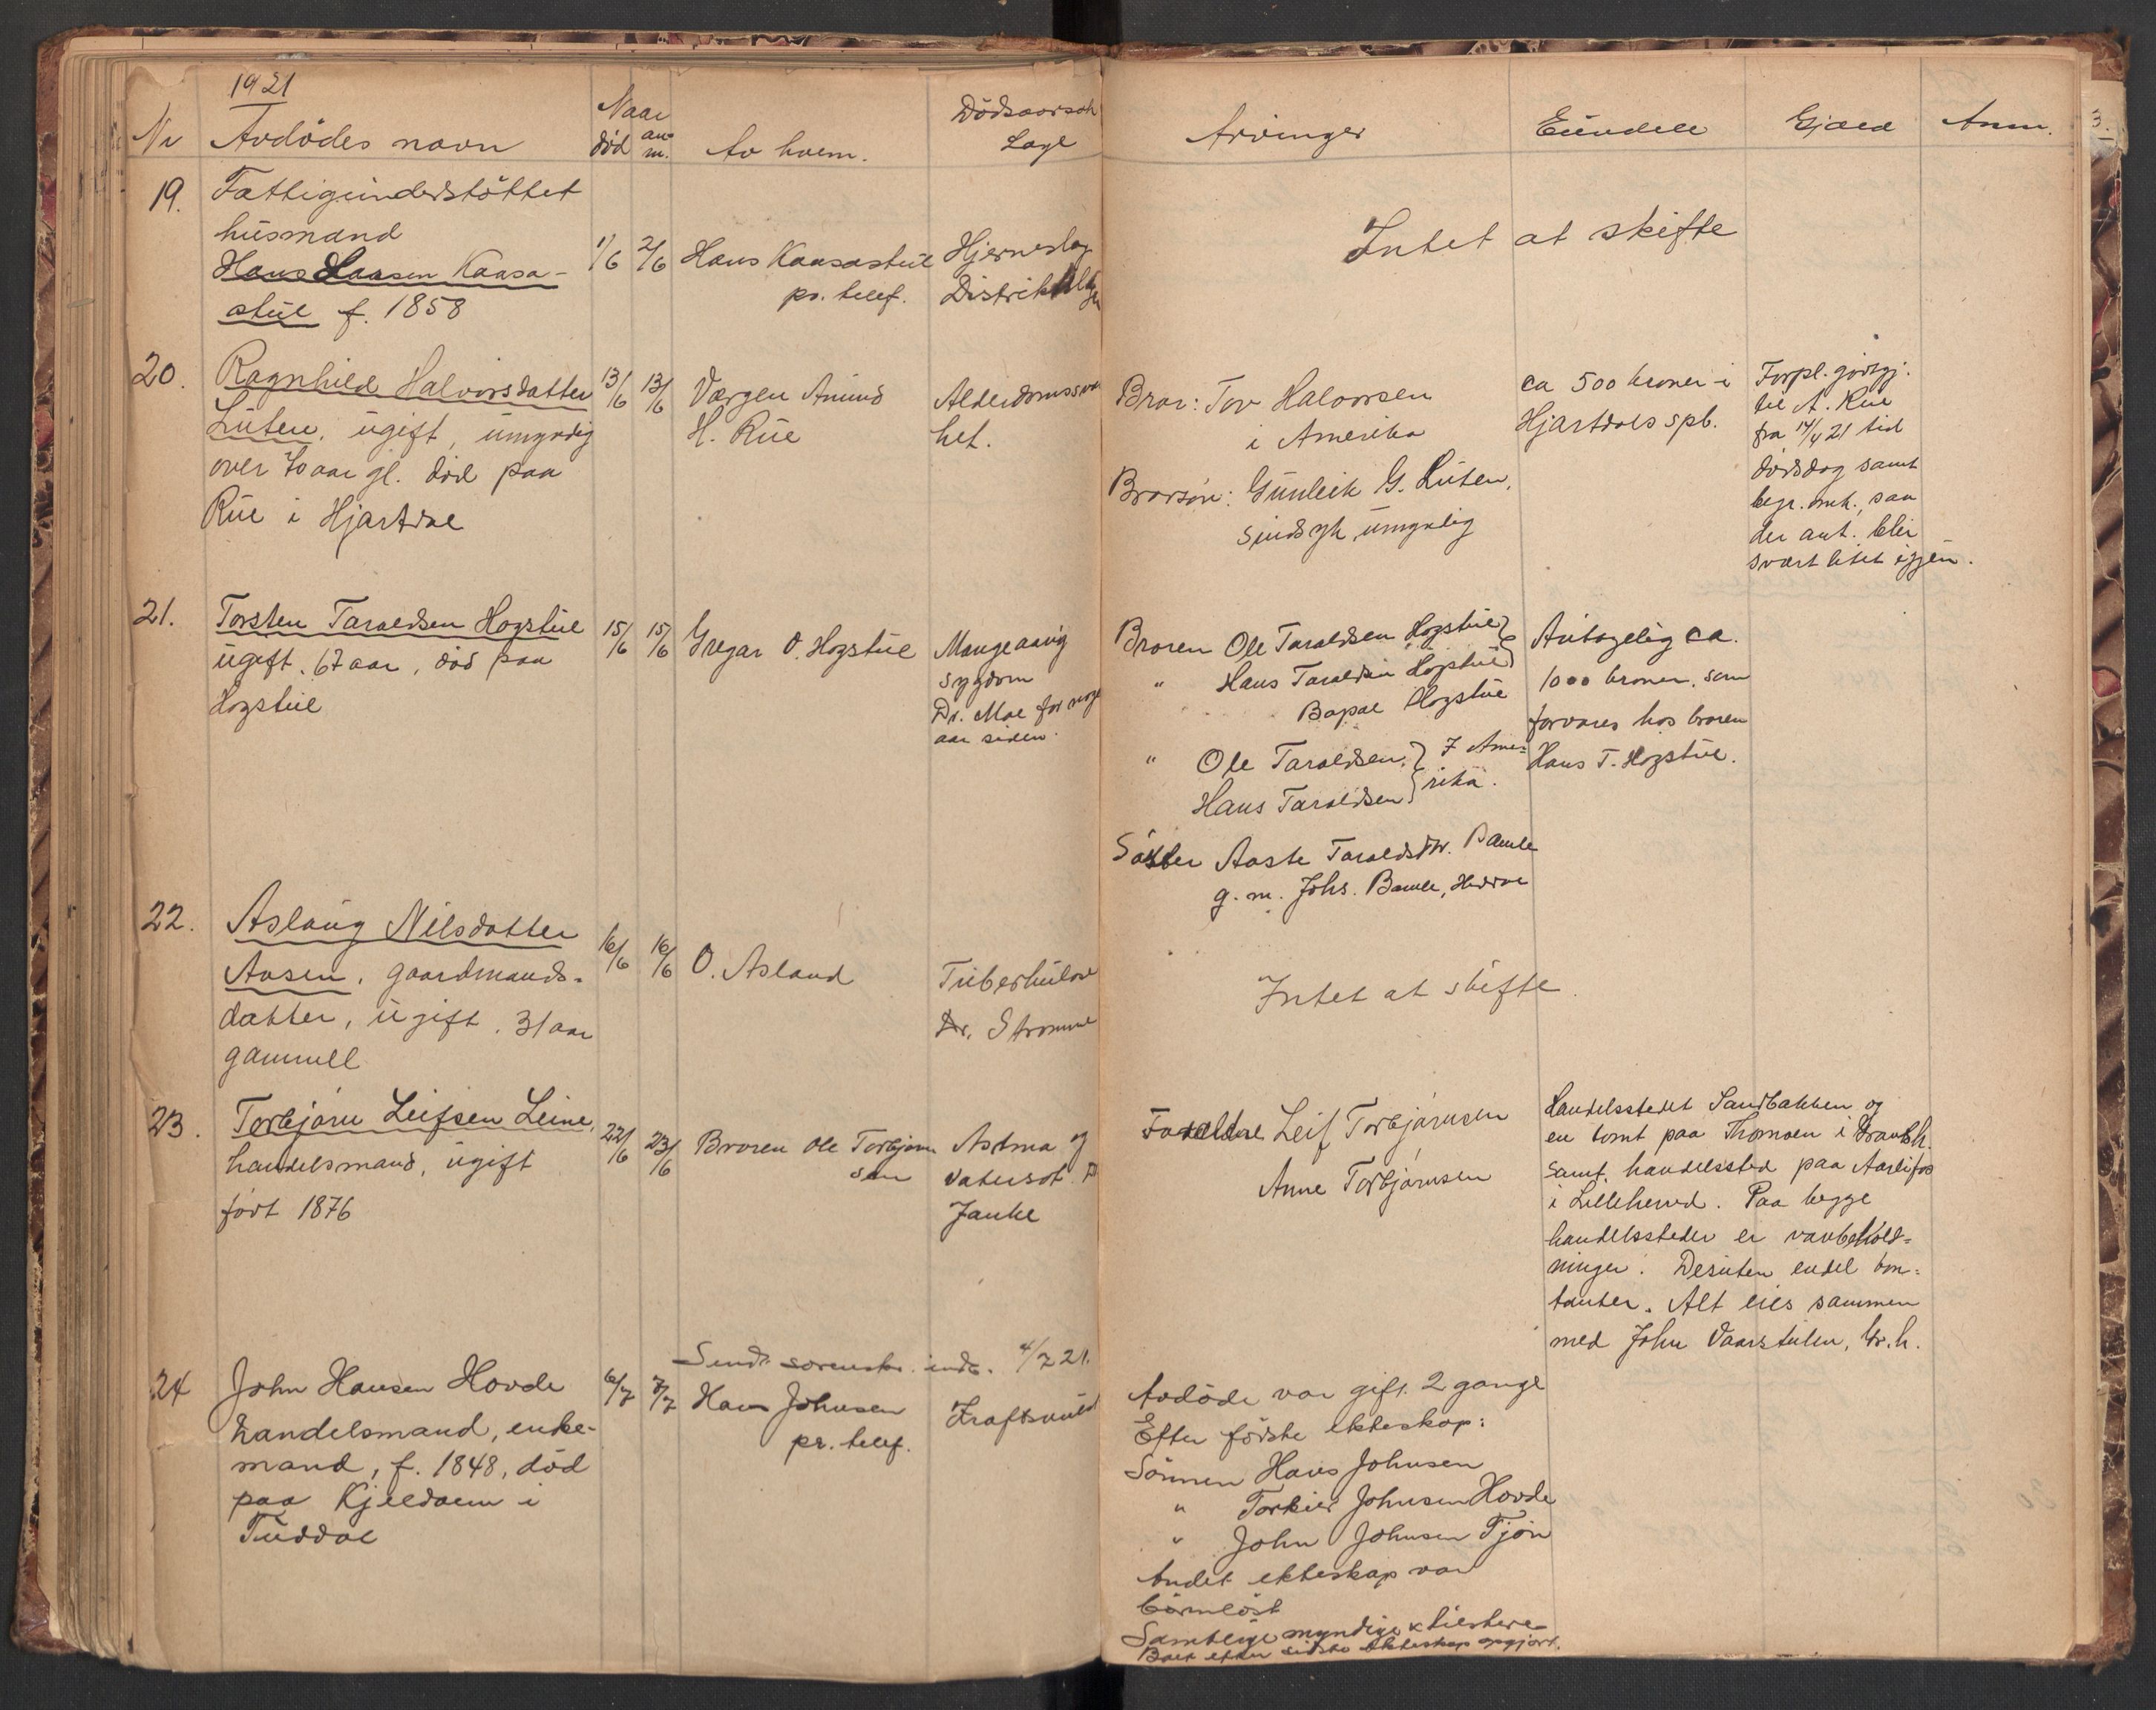 1921
Nr Avdödes navn
Naar
död an= m.
Av hvem.
Dödsaarsak
Læge
19. Fattigunderstöttet
husmand
Hans Hansen Kaasa-
stul f. 1858
1/6 2/6 Hans Kaasastul
pr. telef.
Hjerneslag
20. Ragnhild Halvorsdatter
Luten, ugift, umyndig
over 70 aar gl. död paa
Rue i Hjartdal
13/6 13/6 Værgen Amund
H. Rue
het.
21. Torsten Taraldsen Hogstul
ugift. 67 aar, död paa
Hogstul
15/6 15/6 Gregar O. Hogstul
Mangeaarig
sygdom
Dr. Moe for noge
aar siden.
22. Aslaug Nilsdatter
Aasen, gaardmands=
datter, ugift. 31 aar
gammell
16/6 16/6 O. Asland
Tuberkulose
Dr. Stromme
23. Torbjörn Leifsen Leine,
handelsmand, ugift
födt 1876
22/6 23/6 Broren Ole Torbjörn
sen
Astma og
vatersot. D
Janke
Sendt sorenskr. indb. 4/7 21.
24 John Hansen Hovde
handelsmand, enke-
mand, f. 1848, död
paa Kjeldalen i
Tuddal
6/7 7/7 Hans Johnsen
pr. telef.
3.
Arvinger
Eiendele
Gjæld
Anm.
Intet at skifte
Bror: Tov Halvorsen
i Amerika
Brorsön: Gunleik G. Luten,
sindsyk, umyndig
ca 500 kroner i
Hjartdals spb.
Forpl. godtgj.
til A. Rue
fra 14/4 21 til
dödsdag samt
begr. omk., saa
der ant. blir
svært litet igjen.
Broren Ole Taraldsen Hogstul }
" Hans Taraldsen Hogstul }
Bøpal Hogstul
" Ole Taraldsen } I Ame=
Hans Taraldsen } rika.
Söster Aaste Taraldsdtr. Bamle
g. m. Johs. Bamle, Heddal
Antagelig ca.
1000 kroner, som
forvares hos broren
Hans T. Hogstul.
Intet at skifte
Forældre Leif Torbjörnsen
Anne Torbjörnsen
Handelsstedet Sandbakken og
en tomt paa Thomoen i Bratsb.
samt handelssted paa Aarlifos
i Lilleherred. Paa begge
handelssteder er varebehold=
ninger. Desuten endel kon=
tanter. Alt eies sammen
med John Vaarstulen, Gr.h.
Avdöde var gift 2 gange
Efter förste ekteskap:
Sönnen Hans Johnsen
" Torkier Johnsen Hovde
" John Johnsen Tjön
Andet ekteskap var
barnlöst
Samtlige myndige & tilstede
Boet efter sidste ekteskap opgjort.